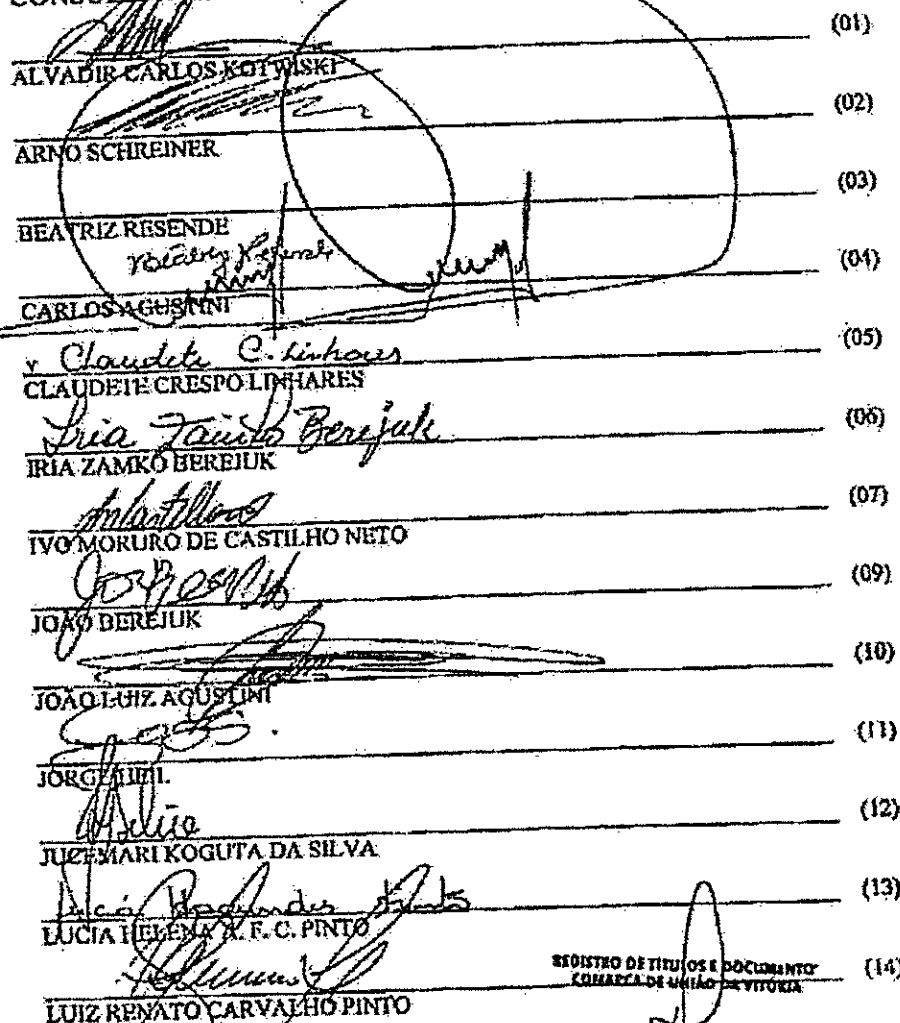 (01)
ALVADIR CARLOS KOTWISKI
(02)
ARNO SCHREINER
(03)
BEATRIZ RESENDE
Beatriz Resende
(04)
CARLOS AGUSTINI
Claudete C. Linhares
(05)
CLAUDETE CRESPO LINHARES
Iria Zamko Berejuk
(06)
IRIA ZAMKO BEREJUK
(07)
IVO MORURO DE CASTILHO NETO
(09)
JOÃO BEREJUK
(10)
JOÃO LUIZ AGUSTINI
(11)
JORGE
(12)
JUCEMARI KOGUTA DA SILVA
(13)
LUCIA HELENA A. F. C. PINTO
REGISTRO DE TITULOS E DOCUMENTO
COMARCA DE UNIÃO DA VITÓRIA
(14)
LUIZ RENATO CARVALHO PINTO